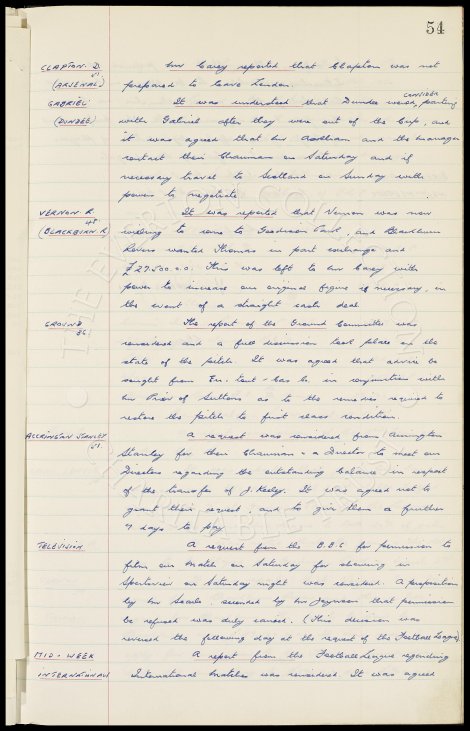 54
CLAPTON. D. Mr Carey reported that Clapton was not
(ARSENAL) prepared to leave London.
GABRIEL It was understood that Dundee would CONSIDER parting
(DUNDEE) with Gabriel after they were out of the Cup, and
it was agreed that Mr and the manager
contact their Chairman on Saturday and if
necessary travel to Scotland on Sunday with
powers to negotiate.
VERNON R. It was reported that Vernon was now
(BLACKBURN R.) willing to come to Goodison Park, and Blackburn
Rovers wanted Thomas in part exchange and
£27.500.0.0. This was left to Mr Carey with
power to increase our original figure if necessary, in
the event of a straight cash deal.
GROUND The report of the Ground Committee was
86. considered and a full discussion took place on the
state of the pitch. It was agreed that advice be
sought from En. tout-Cas Co. in conjunction with
Mr Prior of Suttons as to the remedies required to
restore the pitch to first class condition.
ACCRINGTON STANLEY A request was considered from Accrington
Stanley for their Chairman & a Director to meet our
Directors regarding the outstanding balance in respect
of the transfer of J. Keeley. It was agreed not to
grant their request, and to give them a further
7 days to pay.
TELEVISION A request from the B.B.C for permission to
film our match on Saturday for showing in
Sportsview on Saturday night was considered. A proposition
by Mr Searle, seconded by Mr Joynson that permission
be refused was duly carried. (This decision was
reversed the following day at the request of the Football League).
MID-WEEK A report from the Football League regarding
INTERNATIONALS International matches was considered. It was agreed